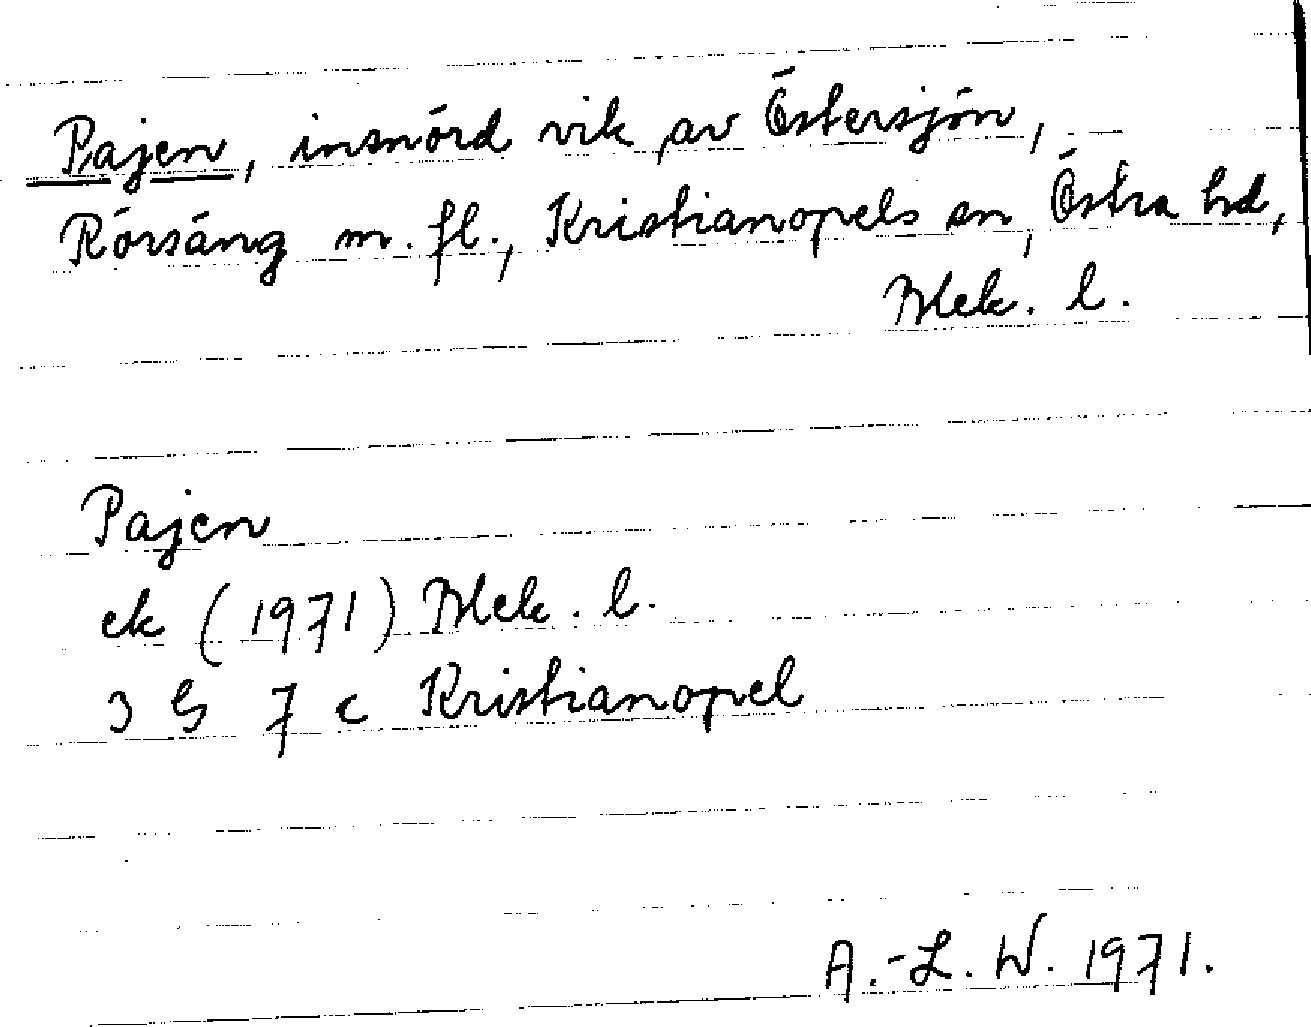 Pajen, insnörd vik av Östersjön,
Rörsäng m. fl., Kristianopels sn, Östra hd,
Blek. l.
Pajen
ek (1971) Blek. l.
3 G 7 c Kristianopel
A.-L. W. 1971.